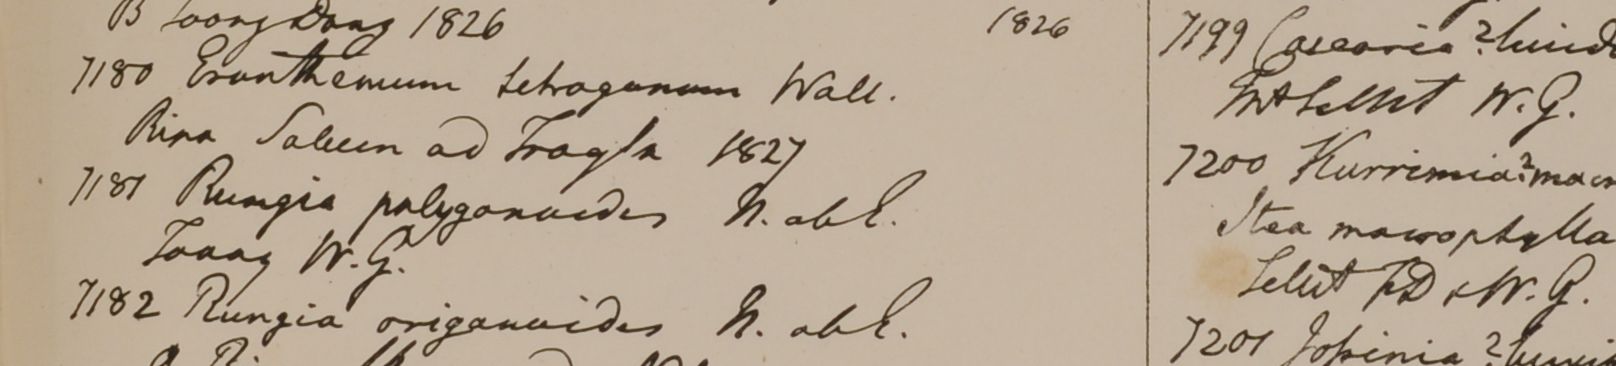 B Toong Dong 1826 1826
7180 Eranthemum tetragonum Wall.
Ripa Saluen ad Trogla 1827
7181 Rungia polygonoides N. ab E.
Toong W.G.
7182 Rungia origanoides N. ab E.
7199 Casearia?
Mt Sillet W.G.
7200 Kurrimia?
Itea macrophylla
Sillet FD & W.G.
7201